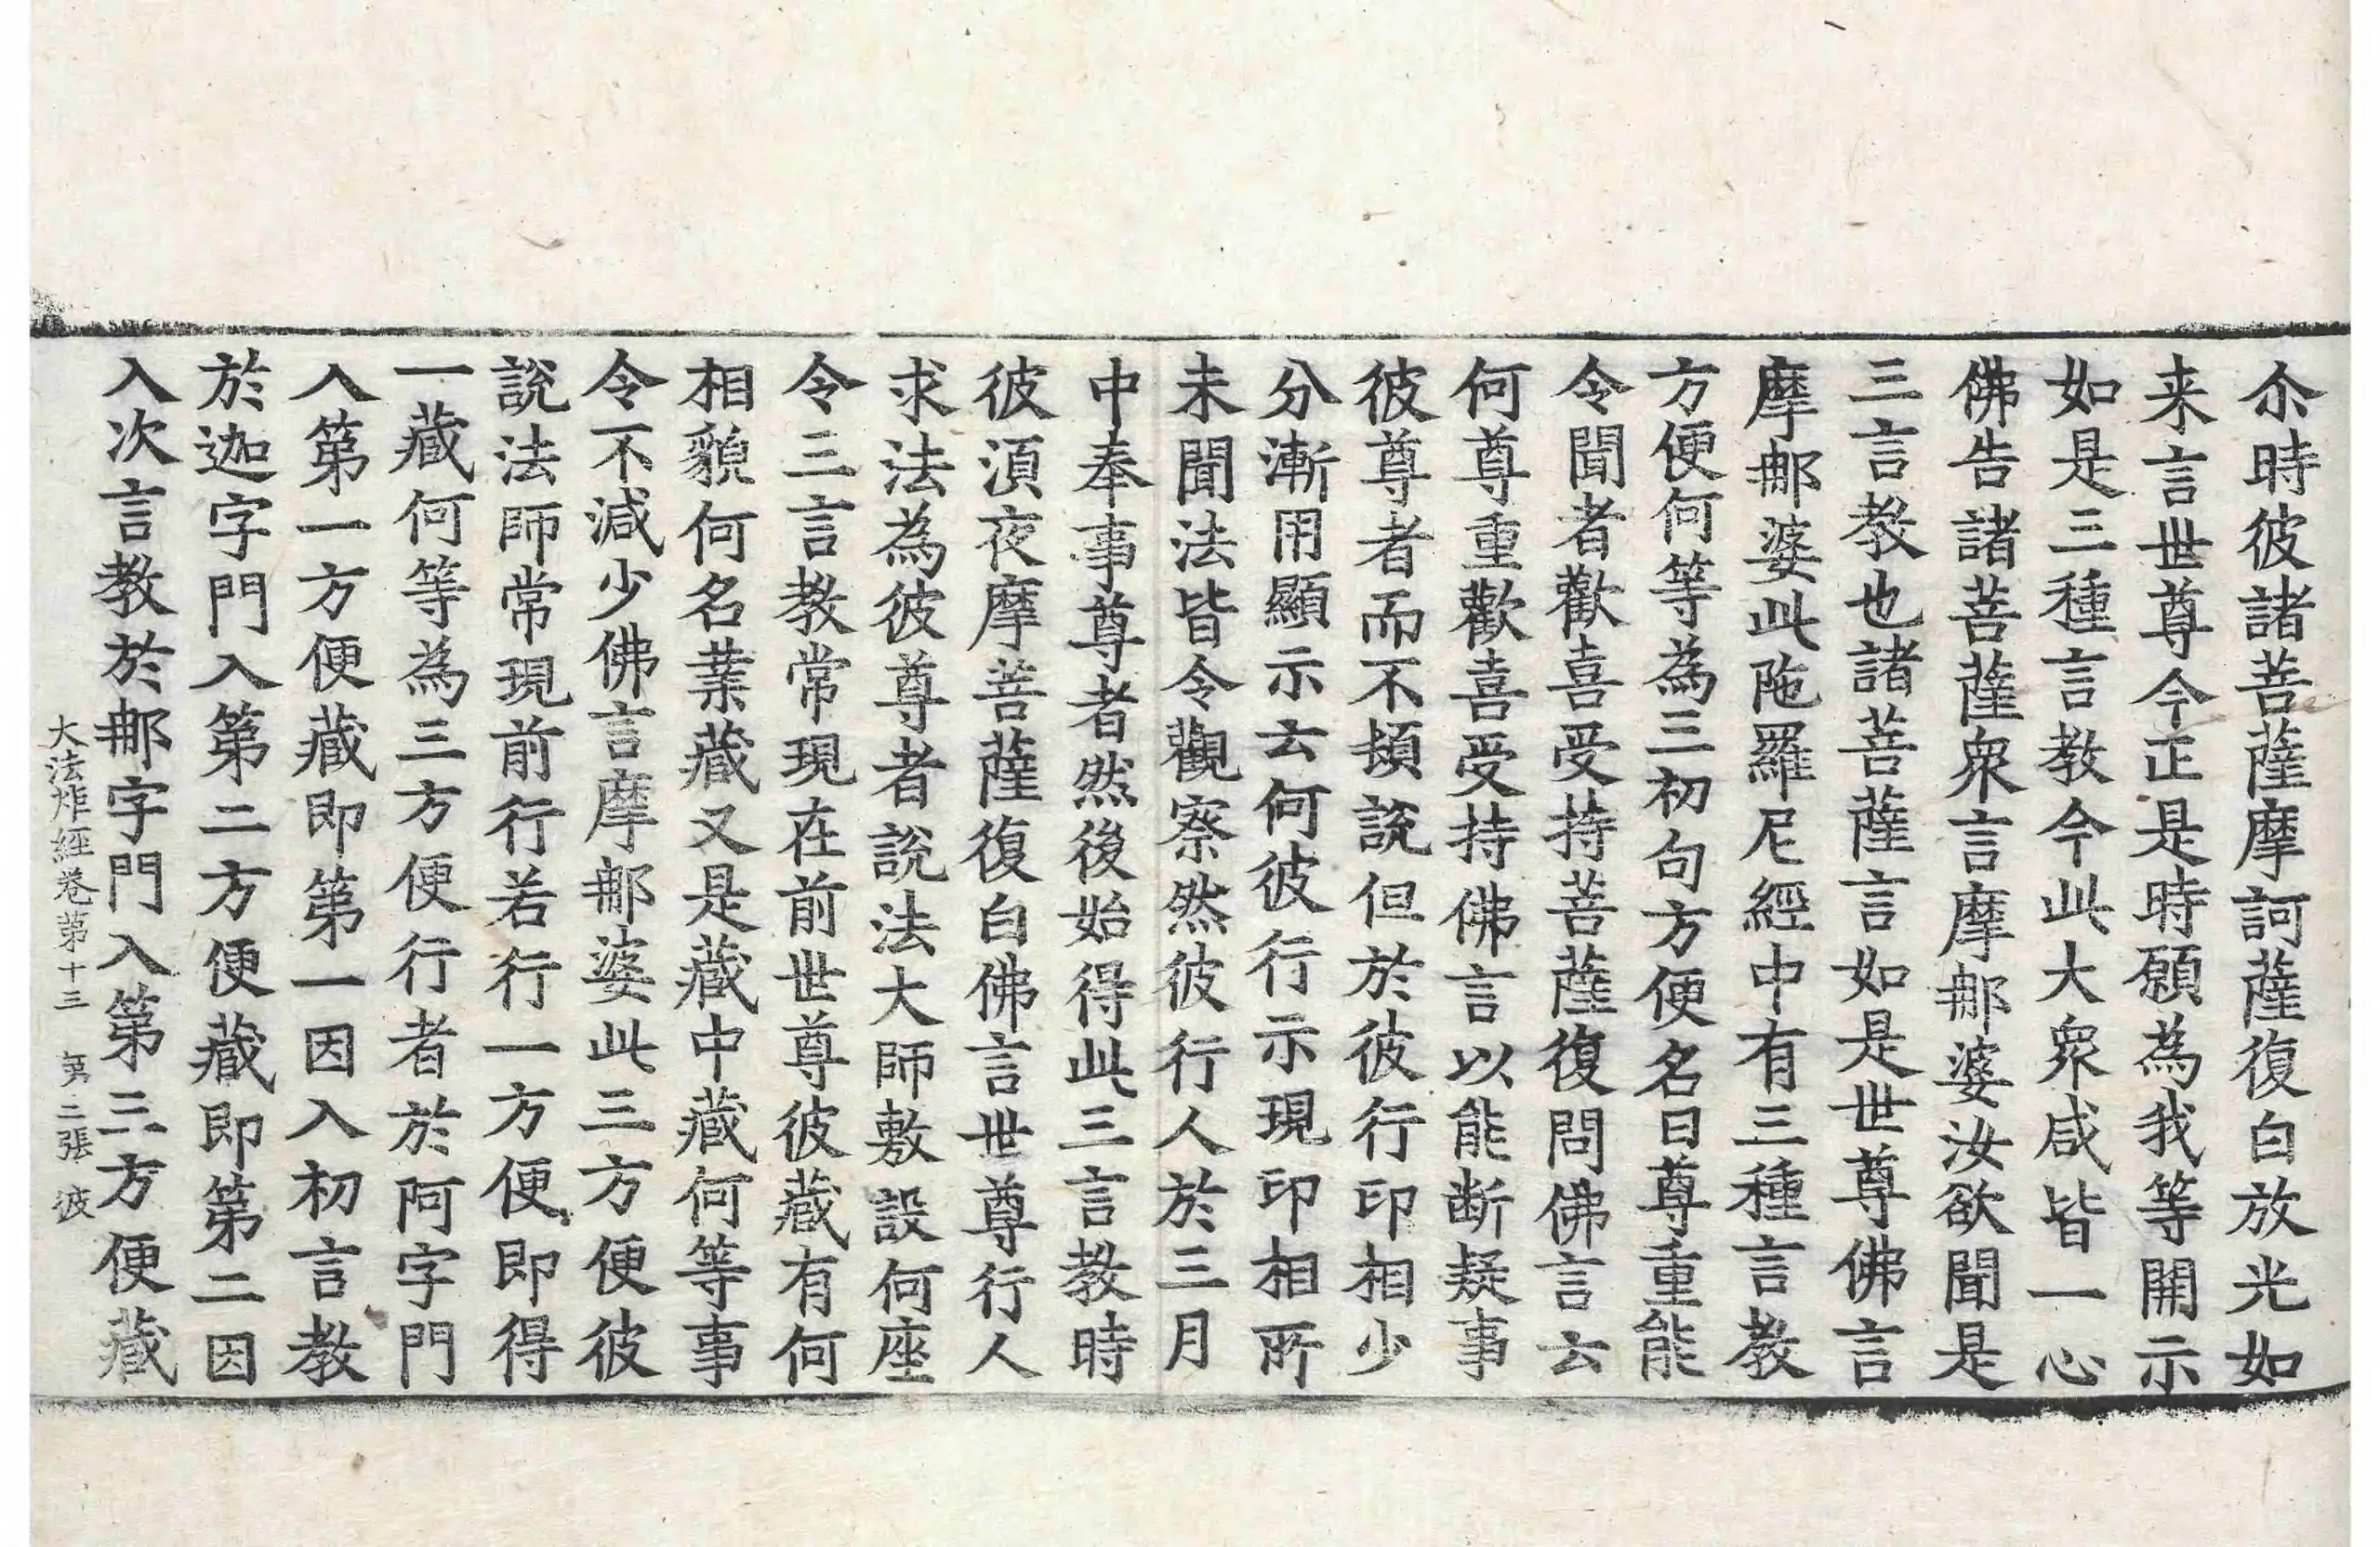 尒時彼諸菩薩摩訶薩復白放光如
来言世尊今正是時願為我等開示
如是三種言教今此大衆咸皆一心
佛告諸菩薩衆言摩郍婆汝欲聞是
三言教也諸菩薩言如是世尊佛言
摩郍婆此陁羅尼經中有三種言教
方便何等為三初句方便名曰尊重能
令聞者歡喜受持菩薩復問佛言云
何尊重歡喜受持佛言以能断疑事
彼尊者而不頓說但於彼行印相少
分漸用顯示云何彼行示現印相所
未聞法皆令觀察然彼行人於三月
中奉事尊者然後始得此三言教時
彼湏夜摩菩薩復白佛言世尊行人
求法為彼尊者說法大師敷設何座
令三言教常現在前世尊彼藏有何
相貌何名業藏又是藏中藏何等事
令不減少佛言摩郍婆此三方便彼
說法師常現前行若行一方便即得
一藏何等為三方便行者於阿字門
入第一方便藏即第一因入初言教
於迦字門入第二方便藏即第二因
入次言教於郍字門入第三方便藏
大法炬經卷第十三 第二張 彼